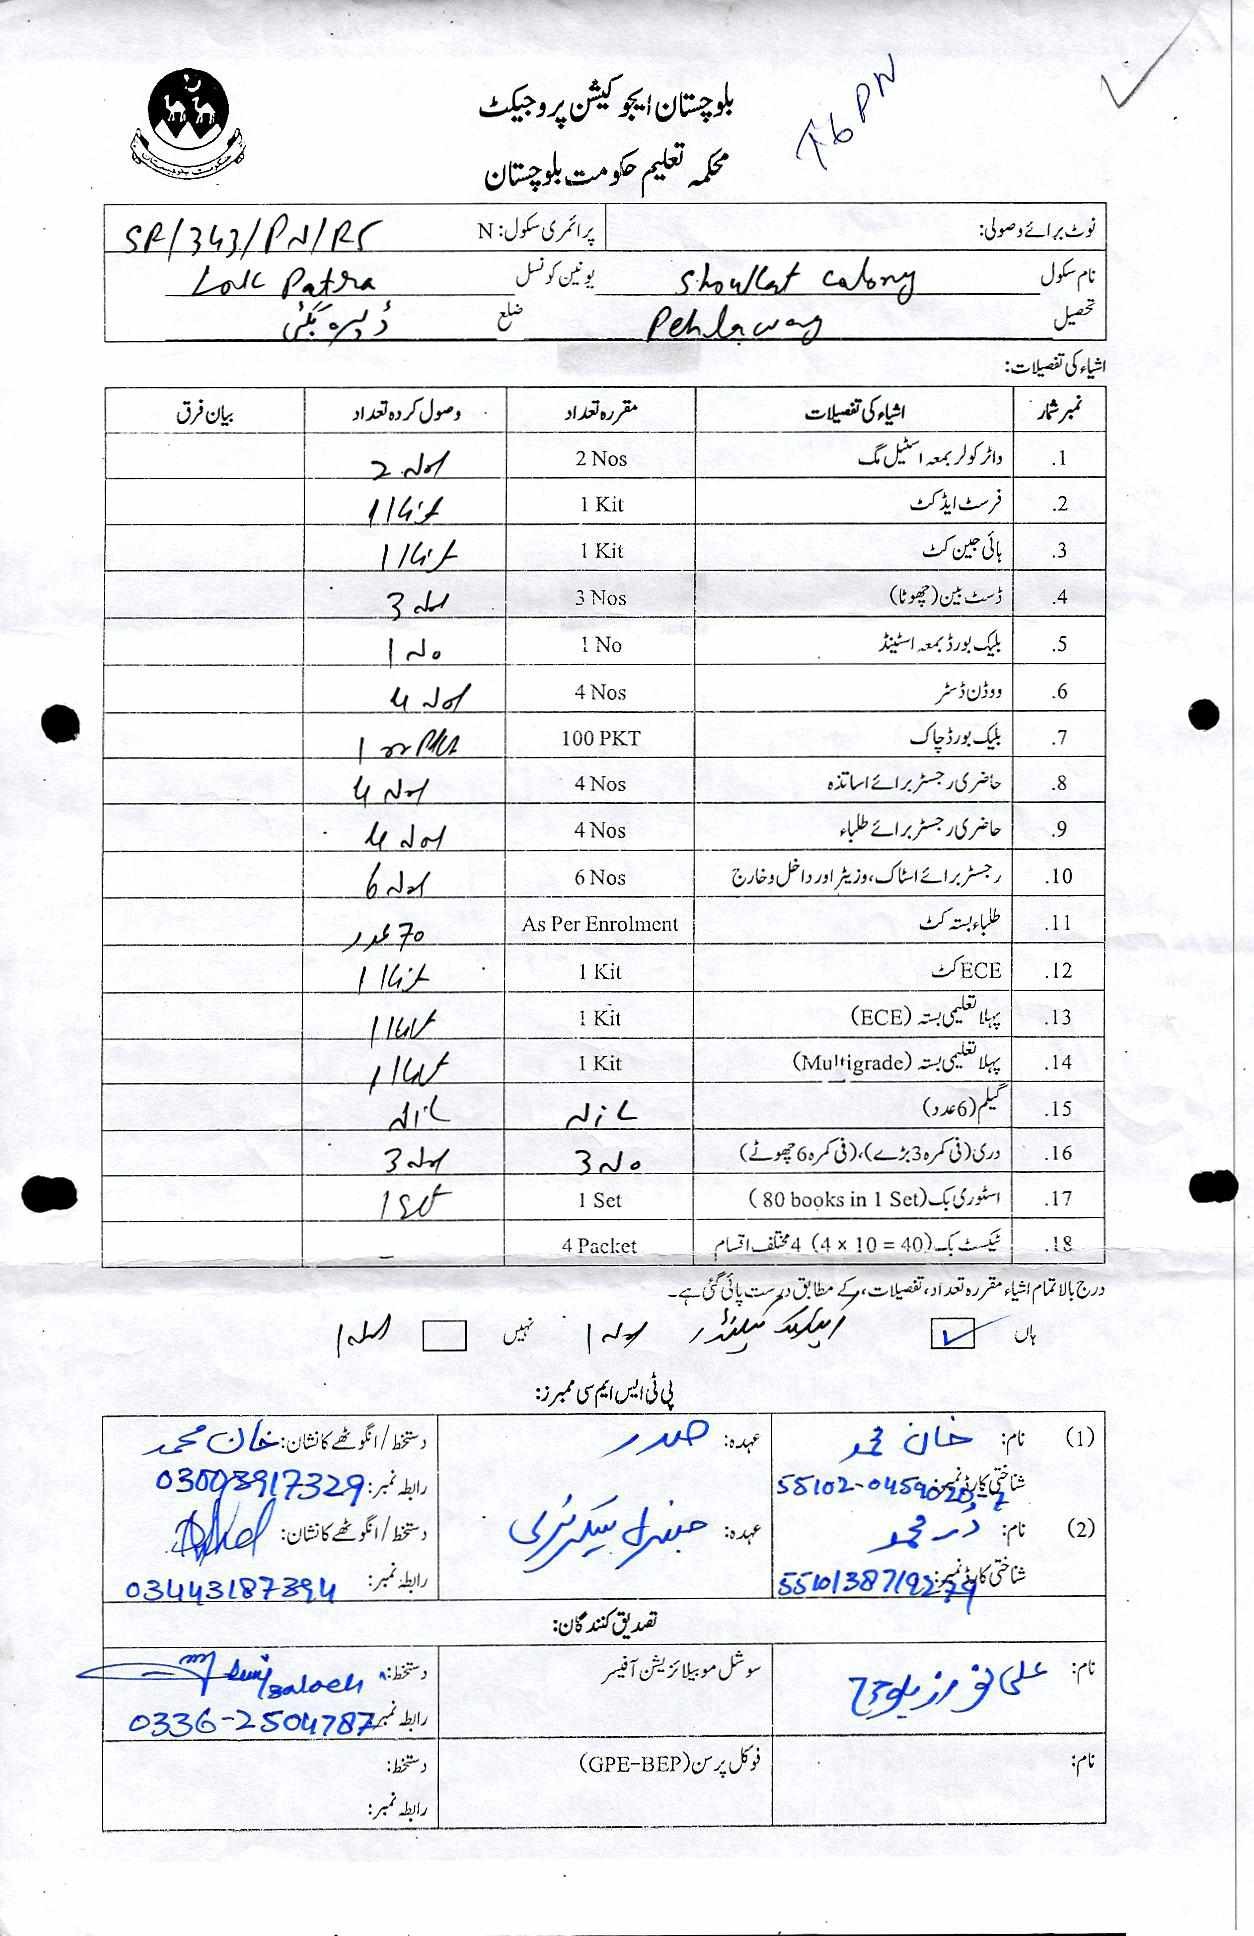 T6 PN
بلوچستان ایجوکیشن پروجیکٹ
محکمہ تعلیم حکومت بلوچستان
نوٹ برائے وصولی: پرائمری سکول: N SR/343/PN/RS
نام سکول Showkat colony یونین کونسل Patra
تحصیل Pehlawag ضلع ڈیرہ بگٹی
اشیاء کی تفصیلات:
نمبر شمار اشیاء کی تفصیلات مقررہ تعداد وصول کردہ تعداد بیان فرق
1. واٹر کولر بمعہ اسٹیل مگ 2 Nos 2 Nos
2. فرسٹ ایڈ کٹ 1 Kit 1 Kit
3. ہائی جین کٹ 1 Kit 1 Kit
4. ڈسٹ بین (چھوٹا) 3 Nos 3 Nos
5. بلیک بورڈ بمعہ اسٹینڈ 1 No 1 No
6. ووڈن ڈسٹر 4 Nos 4 Nos
7. بلیک بورڈ چاک 100 PKT 100 Pkt
8. حاضری رجسٹر برائے اساتذہ 4 Nos 4 Nos
9. حاضری رجسٹر برائے طلباء 4 Nos 4 Nos
10. رجسٹر برائے اسٹاک، وزیٹر اور داخل و خارج 6 Nos 6 Nos
11. طلباء بستہ کٹ As Per Enrolment 70 عدد
12. ECE کٹ 1 Kit 1 Kit
13. پہلا تعلیمی بستہ (ECE) 1 Kit 1 Kit
14. پہلا تعلیمی بستہ (Multigrade) 1 Kit 1 Kit
15. گیلم (6 عدد) Nil Nil
16. دری (فی کمرہ 3 بڑے)، (فی کمرہ 6 چھوٹے) 3 No 3 Nos
17. اسٹوری بک (80 books in 1 Set) 1 Set 1 Set
18. ٹیکسٹ بک (4 x 10 = 40) 4 مختلف اقسام 4 Packet –
درج بالا تمام اشیاء مقررہ تعداد، تفصیلات، کے مطابق درست پائی گئی ہے۔
ہاں کیلنڈر نہیں
پی ٹی ایس ایم سی ممبرز:
(1) نام: خان محمد عہدہ: صدر دستخط/انگوٹھے کا نشان: خان محمد
شناختی کارڈ نمبر: 55102-0459020-7 رابطہ نمبر: 03003917329
(2) نام: در محمد عہدہ: جنرل سیکرٹری دستخط/انگوٹھے کا نشان:
شناختی کارڈ نمبر: 5510138719279 رابطہ نمبر: 03443187394
تصدیق کنندگان:
نام: علی نورز بلوچ سوشل موبیلائزیشن آفیسر دستخط: Baloch
رابطہ نمبر: 0336-2504787
نام: فوکل پرسن (GPE-BEP) دستخط:
رابطہ نمبر: